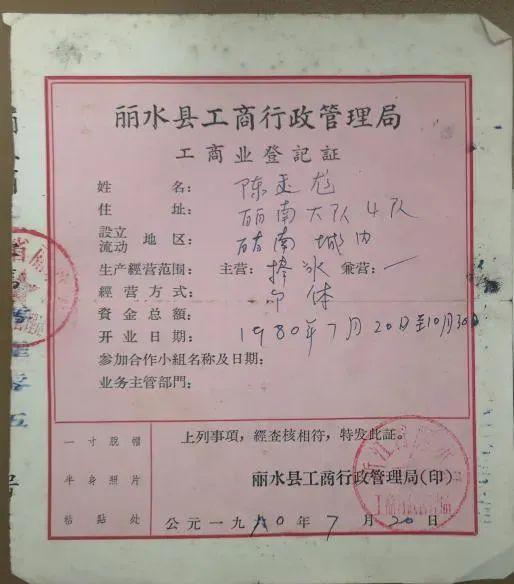 丽水县工商行政管理局
工商业登記証
姓名：陈
住址：丽南大队4队
設立
流动地区：城内
生产經营范围：主营：棒冰 兼营：一
經营方式：个体
資金总額：
开业日期：1980年7月20日至10月30日
参加合作小組名称及日期：
业务主管部門：
一寸脫帽
半身照片
粘貼处
上列事項，經查核相符，特发此証。
丽水县工商行政管理局(印)
公元一九80年7月20日